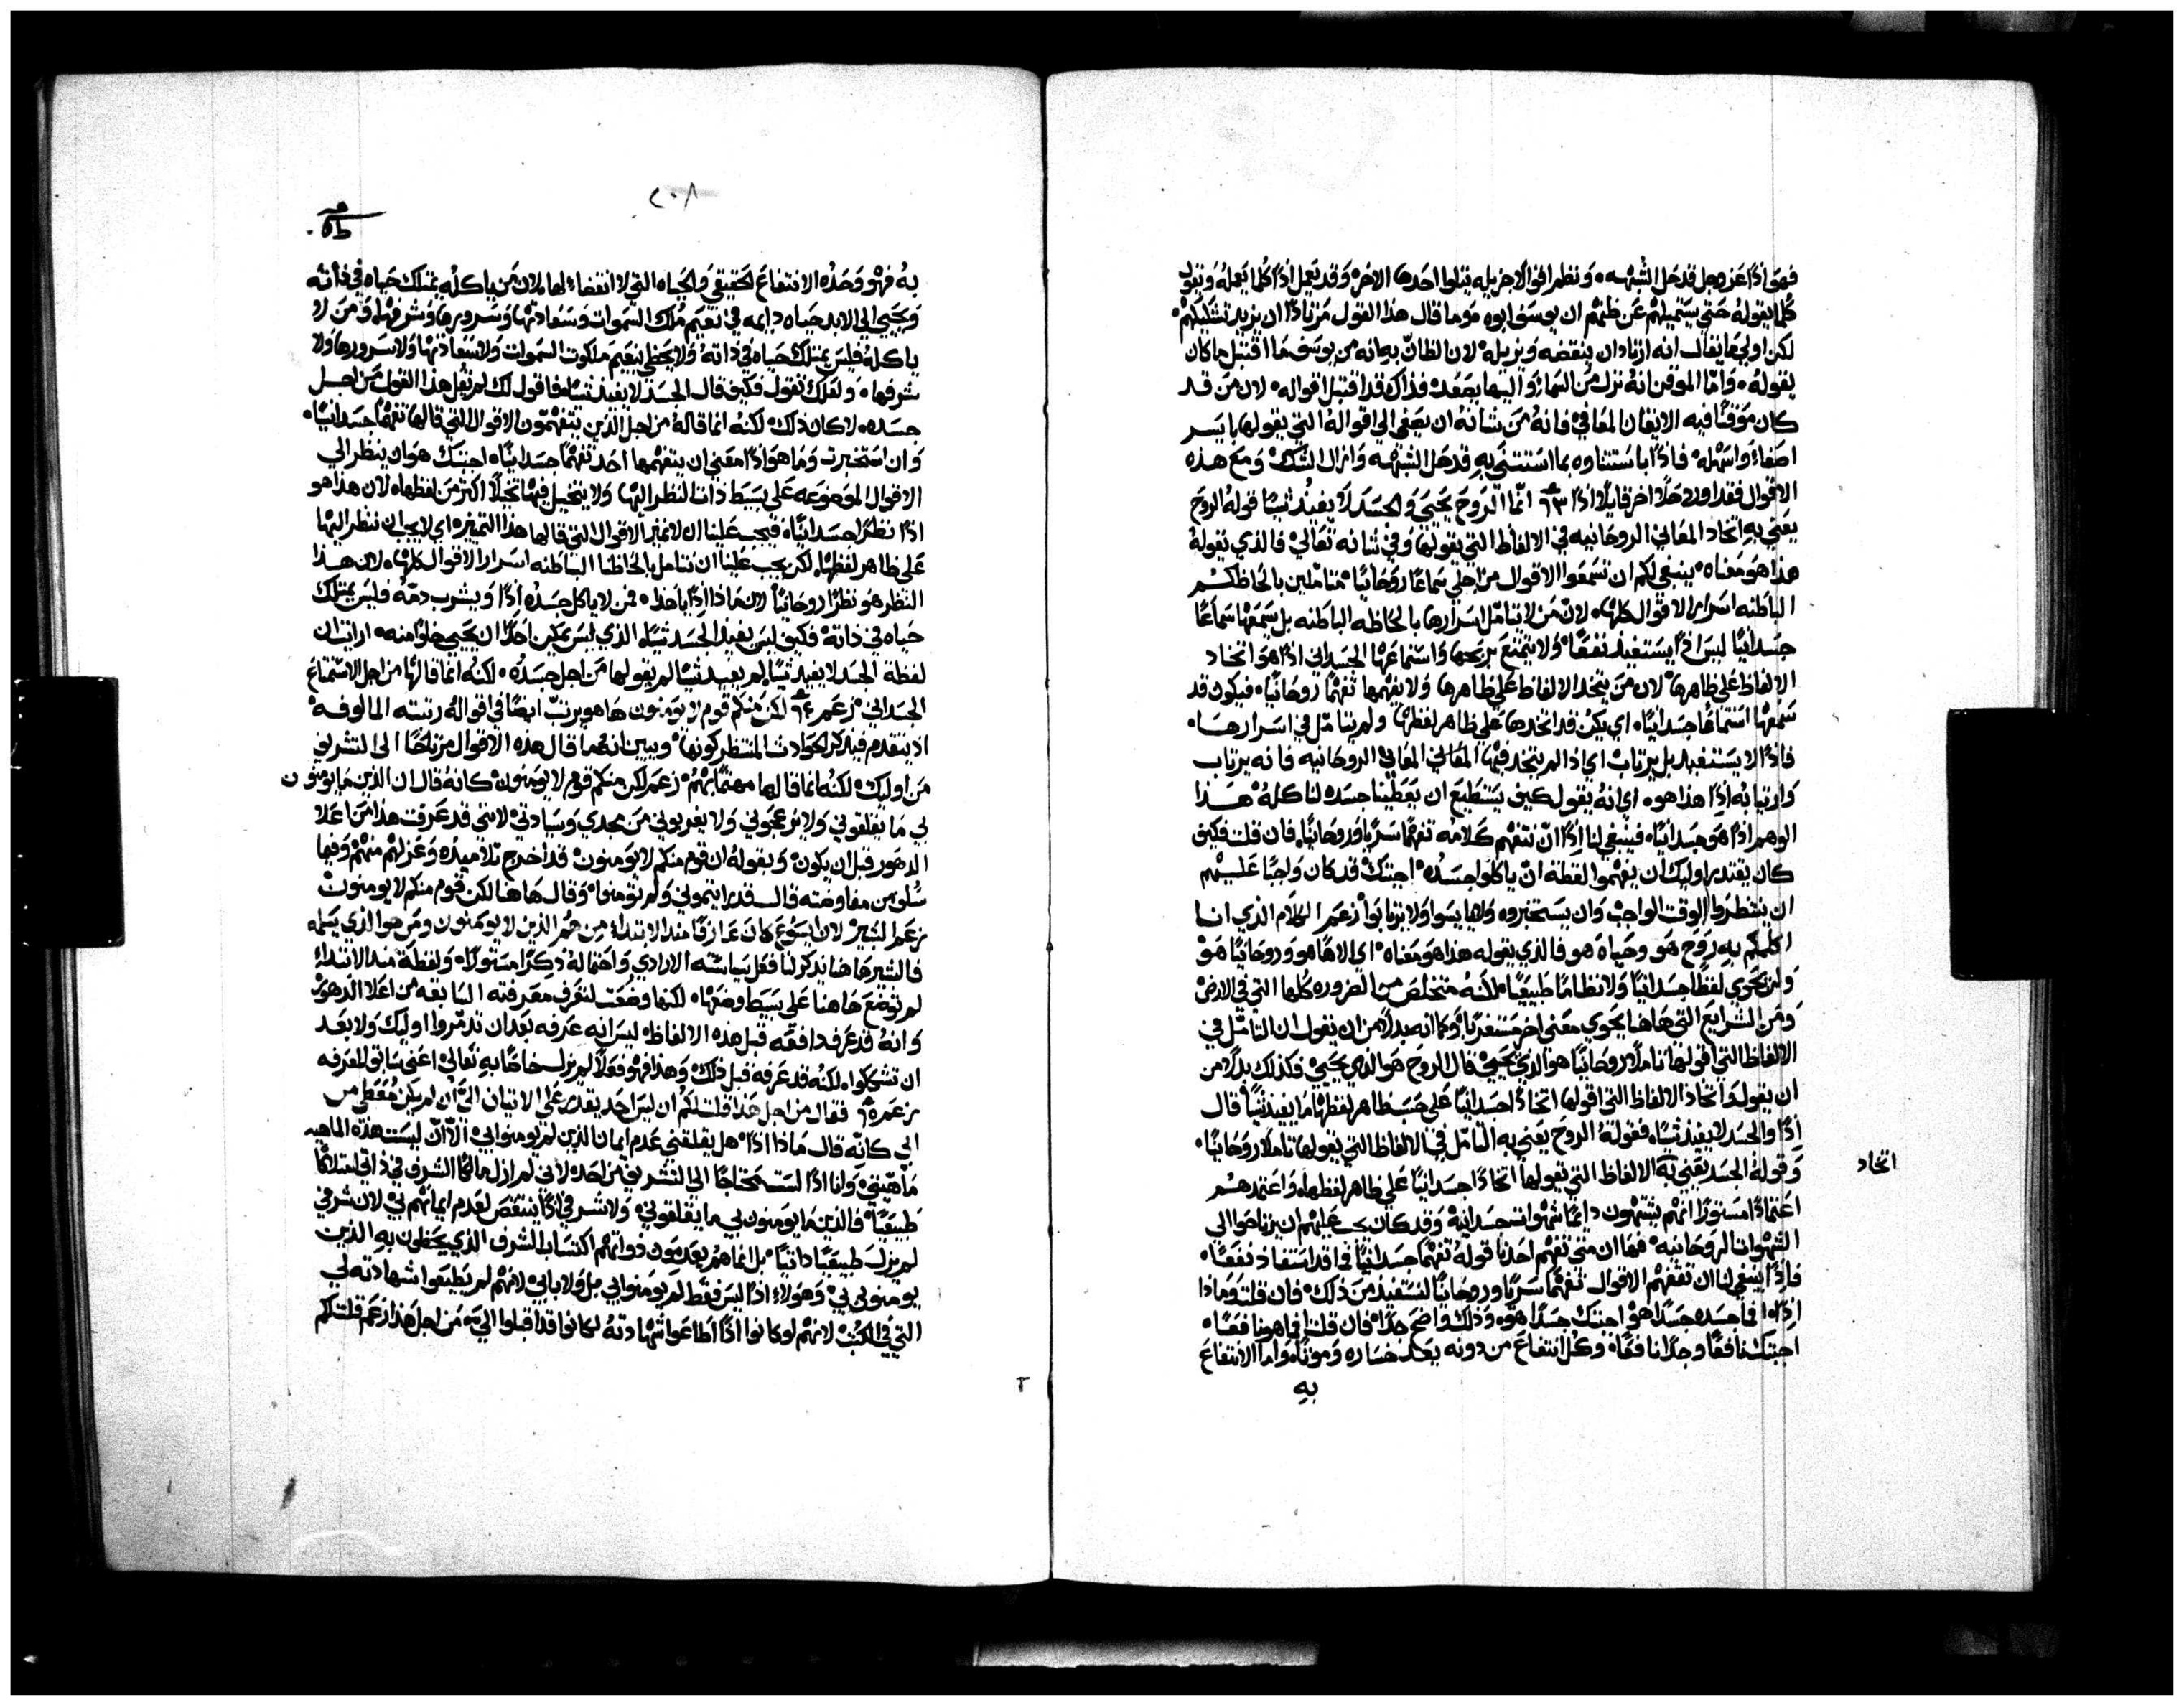 فهو اذًا عز وجل قد حل الشبهه ونظم اقوالا جزيله يتلوا احدها الاخره وقد يعمل اذًا كلما يعمله ويقول
كلما يقوله حتى يستميلهم عن ظنهم ان يوسف ابوه وما قال هذا القول مرتادًا ان يزيد تشككهم
لكن اوليما يقال انه ارتاد ان ينقضه ويزيله لان الظان به انه من يوسف ما اقتبل ما كان
يقوله واما الموقن انه نزل من السماء واليها يصعد فذاك قد اقتبل اقواله لان من قد
كان موقنًا فيه الايقان المعافي فانه من شانه ان يصغى الى اقواله التي يقولها بايسر
اصغاء واسهله فاذًا باستثناوه بما استثنى به قد حل الشبهه وازال الشك ومع هذه
الاقوال فقد اورد حلا اخر قايلا اذًا ٦٣ انما الروح يحيى والجسد لا يفيد شيئًا قوله الروح
يعني به اتخاد المعاني الروحانيه في الالفاظ التي يقولها وفي شانه تعالى فالذي يقوله
هذا هو معناه ينبغي لكم ان تسمعوا الاقوال من اجلي سماعًا روحانيًا متاملين بالحاظكم
الباطنه اسرار الاقوال كلها لان من لا يتامل اسرارها بالحاظه الباطنه بل سمعها سماعًا
جسدانيًا ليس اذًا يستفيد نفعًا ولا يتمتع بربحها واستماعها الجسداني اذًا هو اتخاد
الالفاظ على ظاهرها لان من يتخد الالفاظ على ظاهرها ولا يفهمها تفهمًا روحانيًا فيكون قد
سمعها استماعًا جسدانيًا اي يكن قد اتخدها على ظاهر لفظها ولم يتامل في اسرارها
فاذًا لا يستفيد بل يرتاب اي اذا لم يتخد فيها المعاني المعاني الروحانيه فانه يرتاب
وارتيابه اذًا هذا هو اي انه يقول كيف يستطيع ان يعطينا جسده لناكله هذا
الوهم اذًا هو جسدانيًا فينبغي لنا اذًا ان نتفهم كلامه تفهمًا سريًا وروحانيًا فان قلت فكيف
كان يقتدر اوليك ان يفهموا لفظة ان ياكلوا جسده اجبتك قد كان واجبًا عليهم
ان ينتظروا الوقت الواجب وان يستخبروه ولا يياسوا ولا يرتابوا زعم الكلام الذي انا
اكلمكم به روح هو وحياه هو فالذي يقوله هذا هو معناه اي الاهيًا هو وروحانيًا هو
ولن يحوي لفظًا جسدانيًا ولا نظامًا طبيعيًا لكنه متخلص من الضروره كلها التي في الارض
ومن الشرايع التي هاهنا يحوي معنى اخر مستغربًا وكما انه بدلا من ان يقول ان التامل في
الالفاظ التي اقولها تاملا روحانيًا هو الذي يحيى قال الروح هو الذي يحيى فكذلك بدلا من
ان يقول واتخاد الالفاظ التي اقولها اتخادًا جسدانيًا على حسب ظاهر لفظها ما يفيد شيئًا قال
اذًا والجسد لا يفيد شيئًا فقوله الروح يعني به التامل في الالفاظ التي يقولها تاملا روحانيًا
وقوله الجسد يعني به الالفاظ التي يقولها اتخادًا جسدانيًا على ظاهر لفظها واعتمدهم
اتخاد
اعتمادًا مستورًا انهم يشتهون دايمًا شهوات جسدانيه وقد كان يجب عليهم ان يرتاحوا الى
الشهوات الروحانيه فها ان متى تفهم احدنا قوله تفهمًا جسدانيًا فما قد استفاد نفعًا
فاذًا ينبغي لنا ان نتفهم الاقوال تفهمًا سريًا وروحانيًا لنستفيد من ذلك فان قلت وماذا
اذًا افما جسده جسدًا هو اجبتك جسدًا هو وذلك واضح جدًا فان قلت افما هو نافعًا
اجبتك نافعًا وجدًا نافعًا وكل انتفاع من دونه يعد خساره وموتًا واما الانتفاع
به
٢٠٨
به فهو وحده الانتفاع الحقيقي والحياه التي لا انقضاء لها لان من ياكله يمتلك حياه في ذاته
ويحيى الى الابد حياه دايمه في نعيم ملك السموات وسعادتها وسرورها وشرفها ومن لا
ياكله فليس يمتلك حياه في ذاته ولا يحظى بنعيم ملكوت السموات ولا سعادتها ولا سرورها ولا
شرفها ولعلك تقول فكيف قال الجسد لا يفيد شيئًا فاقول لك لم يقل هذا القول من اجل
جسده لا كان ذلك لكنه انما قاله من اجل الذين يتفهمون الاقوال التي قالها تفهمًا جسدانيًا
وان استخبرت وما هو اذًا معنى ان يتفهمها احد تفهمًا جسدانيًا اجبتك هو ان ينظر الى
الاقوال الموضوعه على بسيط ذات النظر اليها ولا يتخيل فيها تخيلًا اكثر من لفظها لان هذا هو
اذًا نظرًا جسدانيًا فيجب علينا ان لا نميز الاقوال التي قالها هذا التمييز اي لا يجب ان ننظر اليها
على ظاهر لفظها لكن يجب علينا ان نتامل بالحاظنا الباطنه اسرار الاقوال كلها لان هذا
النظر هو نظرًا روحانيًا لان ماذا اذًا يا هذا فمن لا ياكل جسده اذًا ويشرب دمه فليس يمتلك
حياه في ذاته فكيف ليس يفيد الجسد شيئًا الذي ليس يمكن احدًا ان يحيى خلوًا منه ارايت ان
لفظة الجسد لا يفيد شيئًا لم يفيد شيئًا لم يقولها من اجل جسده لكنه انما قالها من اجل الاستماع
الجسداني زعم ٦٤ لكن منكم قوم لا يومنون هاهو يرتب ايضًا في اقواله رتبته المالوفه
اذ يتقدم فيذكر الحوادث المنتظر كونها ويبين انه ما قال هذه الاقوال مرتاحًا الى التشريف
من اوليك لكنه انما قالها مهتمًا بهم زعم لكن منكم قوم لا يومنون كانه قال ان الذين ما يومنون
بي ما يقلقوني ولا يزعجوني ولا يغربوني من مجدي وسيادتي لانني قد عرفت هذا من اعلا
الدهور قبل ان يكون وبقوله ان قوم منكم لا يومنون قد اخرج تلاميذه وعزلهم منهم وفيما
سلف من مفاوضته قال قد رايتموني ولم تومنوا وقال هاهنا لكن قوم منكم لا يومنون
زعم البشير لان ايسوع كان عارفًا منذ الابتداء من هم الذين لا يومنون ومن هو الذي يسلمه
فالبشير هاهنا يذكر لنا فعل سياسته الارادي واحتماله ذكرًا مستورًا ولفظة منذ الابتداء
لم توضع هاهنا على بسيط وضعها لكنها وضعت لتعرف معرفته السابقه من اعلا الدهور
وانه قد عرف دافعه قبل هذه الالفاظ ليس انه عرفه بعد ان تدمروا اوليك ولا بعد
ان تشككوا لكنه قد عرفه قبل ذلك وهذا فهو فعلا لم يزل خاصًا به تعالى اعني سابق المعرفه
زعم ٦٥ فقال من اجل هذا قلت لكم ان ليس احد يقدر على الاتيان الي ان لم يكن معطى من
ابي كانه قال ماذا اذًا هل يقلقني عدم ايمان الذين لم يومنوا بي الا ان ليست هذه الماهيه
ماهيتي وانا اذًا لست محتاجًا الى التشريف من احد لاني لم ازل مالكًا الشرف في ذاتي امتلاكًا
طبيعيًا فالذين ما يومنون بي ما يقلقوني ولا شرفي اذًا ينتقص لعدم ايمانهم بي لان شرفي
لم يزل طبيعيًا ذاتيًا بل انما هم يعدمون ذواتهم اكتساب الشرف الذي يحظى به الذين
يومنون بي وهولاء اذًا ليس فقط لم يومنوا بي بل ولا بابي لانهم لم يطيعوا شهادته لي
التي في الكتب لانهم لو كانوا اذًا اطاعوا شهادته لكانوا قد اقبلوا الي من اجل هذا زعم قلت لكم